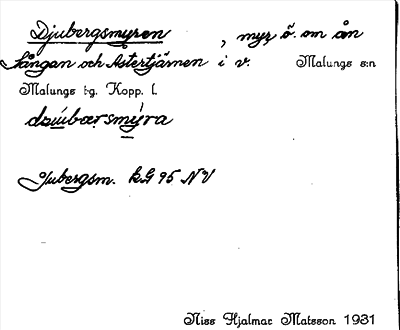 Djubergsmyren, myr ö. om ån
Fångan och Astertjärnen i v. Malungs s:n
Malungs t-g. Kopp. l.
dzúbærsmýra
Jubergsm. kG 95 NV
Niss Hjalmar Matsson 1931